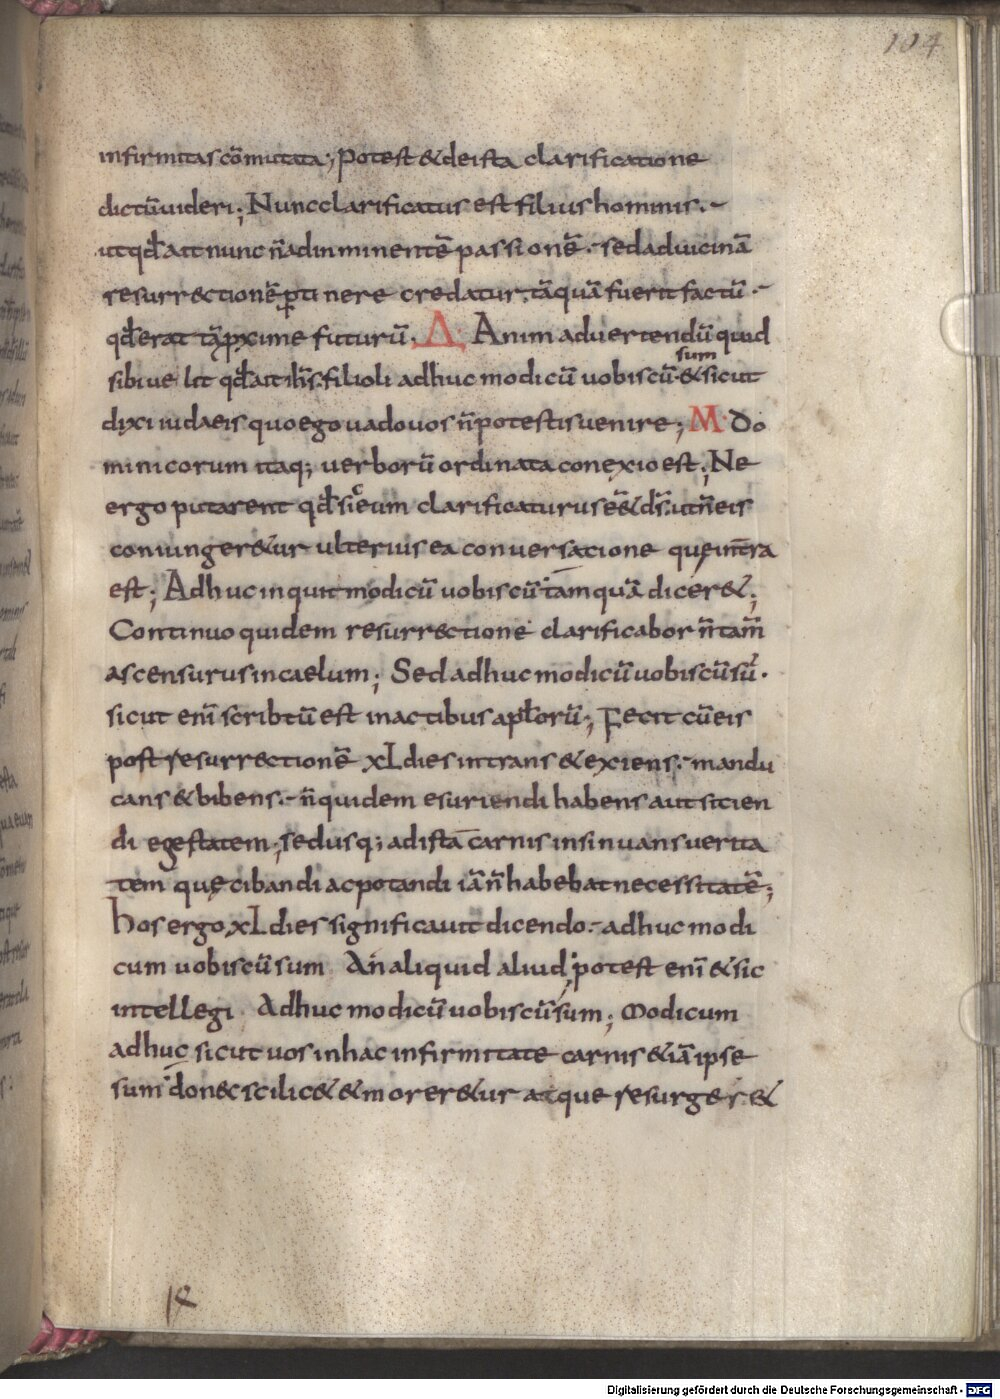 104
infirmitas cōmutata; Potest & de ista clarificatione
dictū uideri; Nunc clarificatus est filius hominis.
ut qđ ait nunc n̄ ad inminentē passionē. sed ad uicinā
resurrectionē ꝑtinere credatur. tāquā fuerit factū.
qđ erat tā ꝓxime futurū. Δ. Animaduertendū quid
sibi uelit qđ ait ih̄s. filioli adhuc modicū uobiscū sum & sicut
dixi iudaeis quo ego uado uos n̄ potestis uenire; M. Do
minicorum itaq; uerborū ordinata conexio est; Ne
ergo putarent qđ sic eum clarificaturus eēt d̄s. ut n̄ eis
coniunger&ur ulterius ea conuersatione quę in t̄ra
est; Adhuc inquit modicū uobiscū tamquā dicer&;
Continuo quidem resurrectione clarificabor n̄ tam̄
ascensurus in caelum; Sed adhuc modicū uobiscū sū.
sicut enī scribtū est in actibus apłorū; Fecit cū eis
post resurrectionē xl dies intrans & exiens. mandu
cans & bibens. n̄ quidem esuriendi habens aut sitien
di egestatem; sed usq; ad ista carnis insinuans uerita
tem quę cibandi ac potandi iā n̄ habebat necessitatē;
Hos ergo xl dies significauit dicendo. adhuc modi
cum uobiscū sum An aliquid aliud; potest enī & sic
intellegi Adhuc modicū uobiscū sum; Modicum
adhuc sicut uos in hac infirmitate carnis & iā ipse
sum donec scilic& & morer&ur atque resurger&